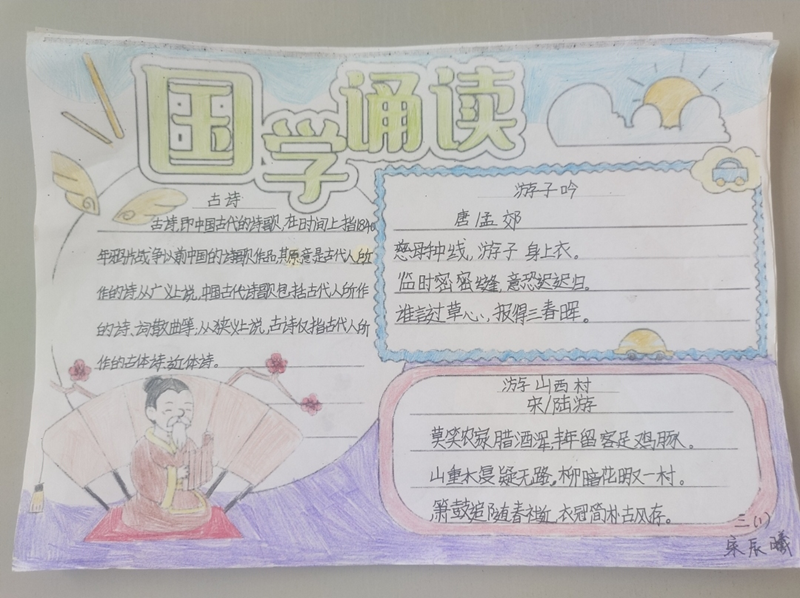 国学诵读
古诗
古诗,即中国古代的诗歌,在时间上指1840
年鸦片战争以前中国的诗歌作品,其原意是古代人所
作的诗从广义上说,中国古代诗歌包括古代人所作
的诗、词散曲等,从狭义上说,古诗仅指古代人所
作的古体诗、近体诗。
游子吟
唐/孟郊
慈母种线,游子身上衣。
监时密密缝,意恐迟迟归。
谁言过草心,报得三春晖。
游山西村
宋/陆游
莫笑农家腊酒浑,丰年留客足鸡豚。
山重水复疑无路,柳暗花明又一村。
箫鼓追随春社近,衣冠简朴古风存。
三(1)
辰曦